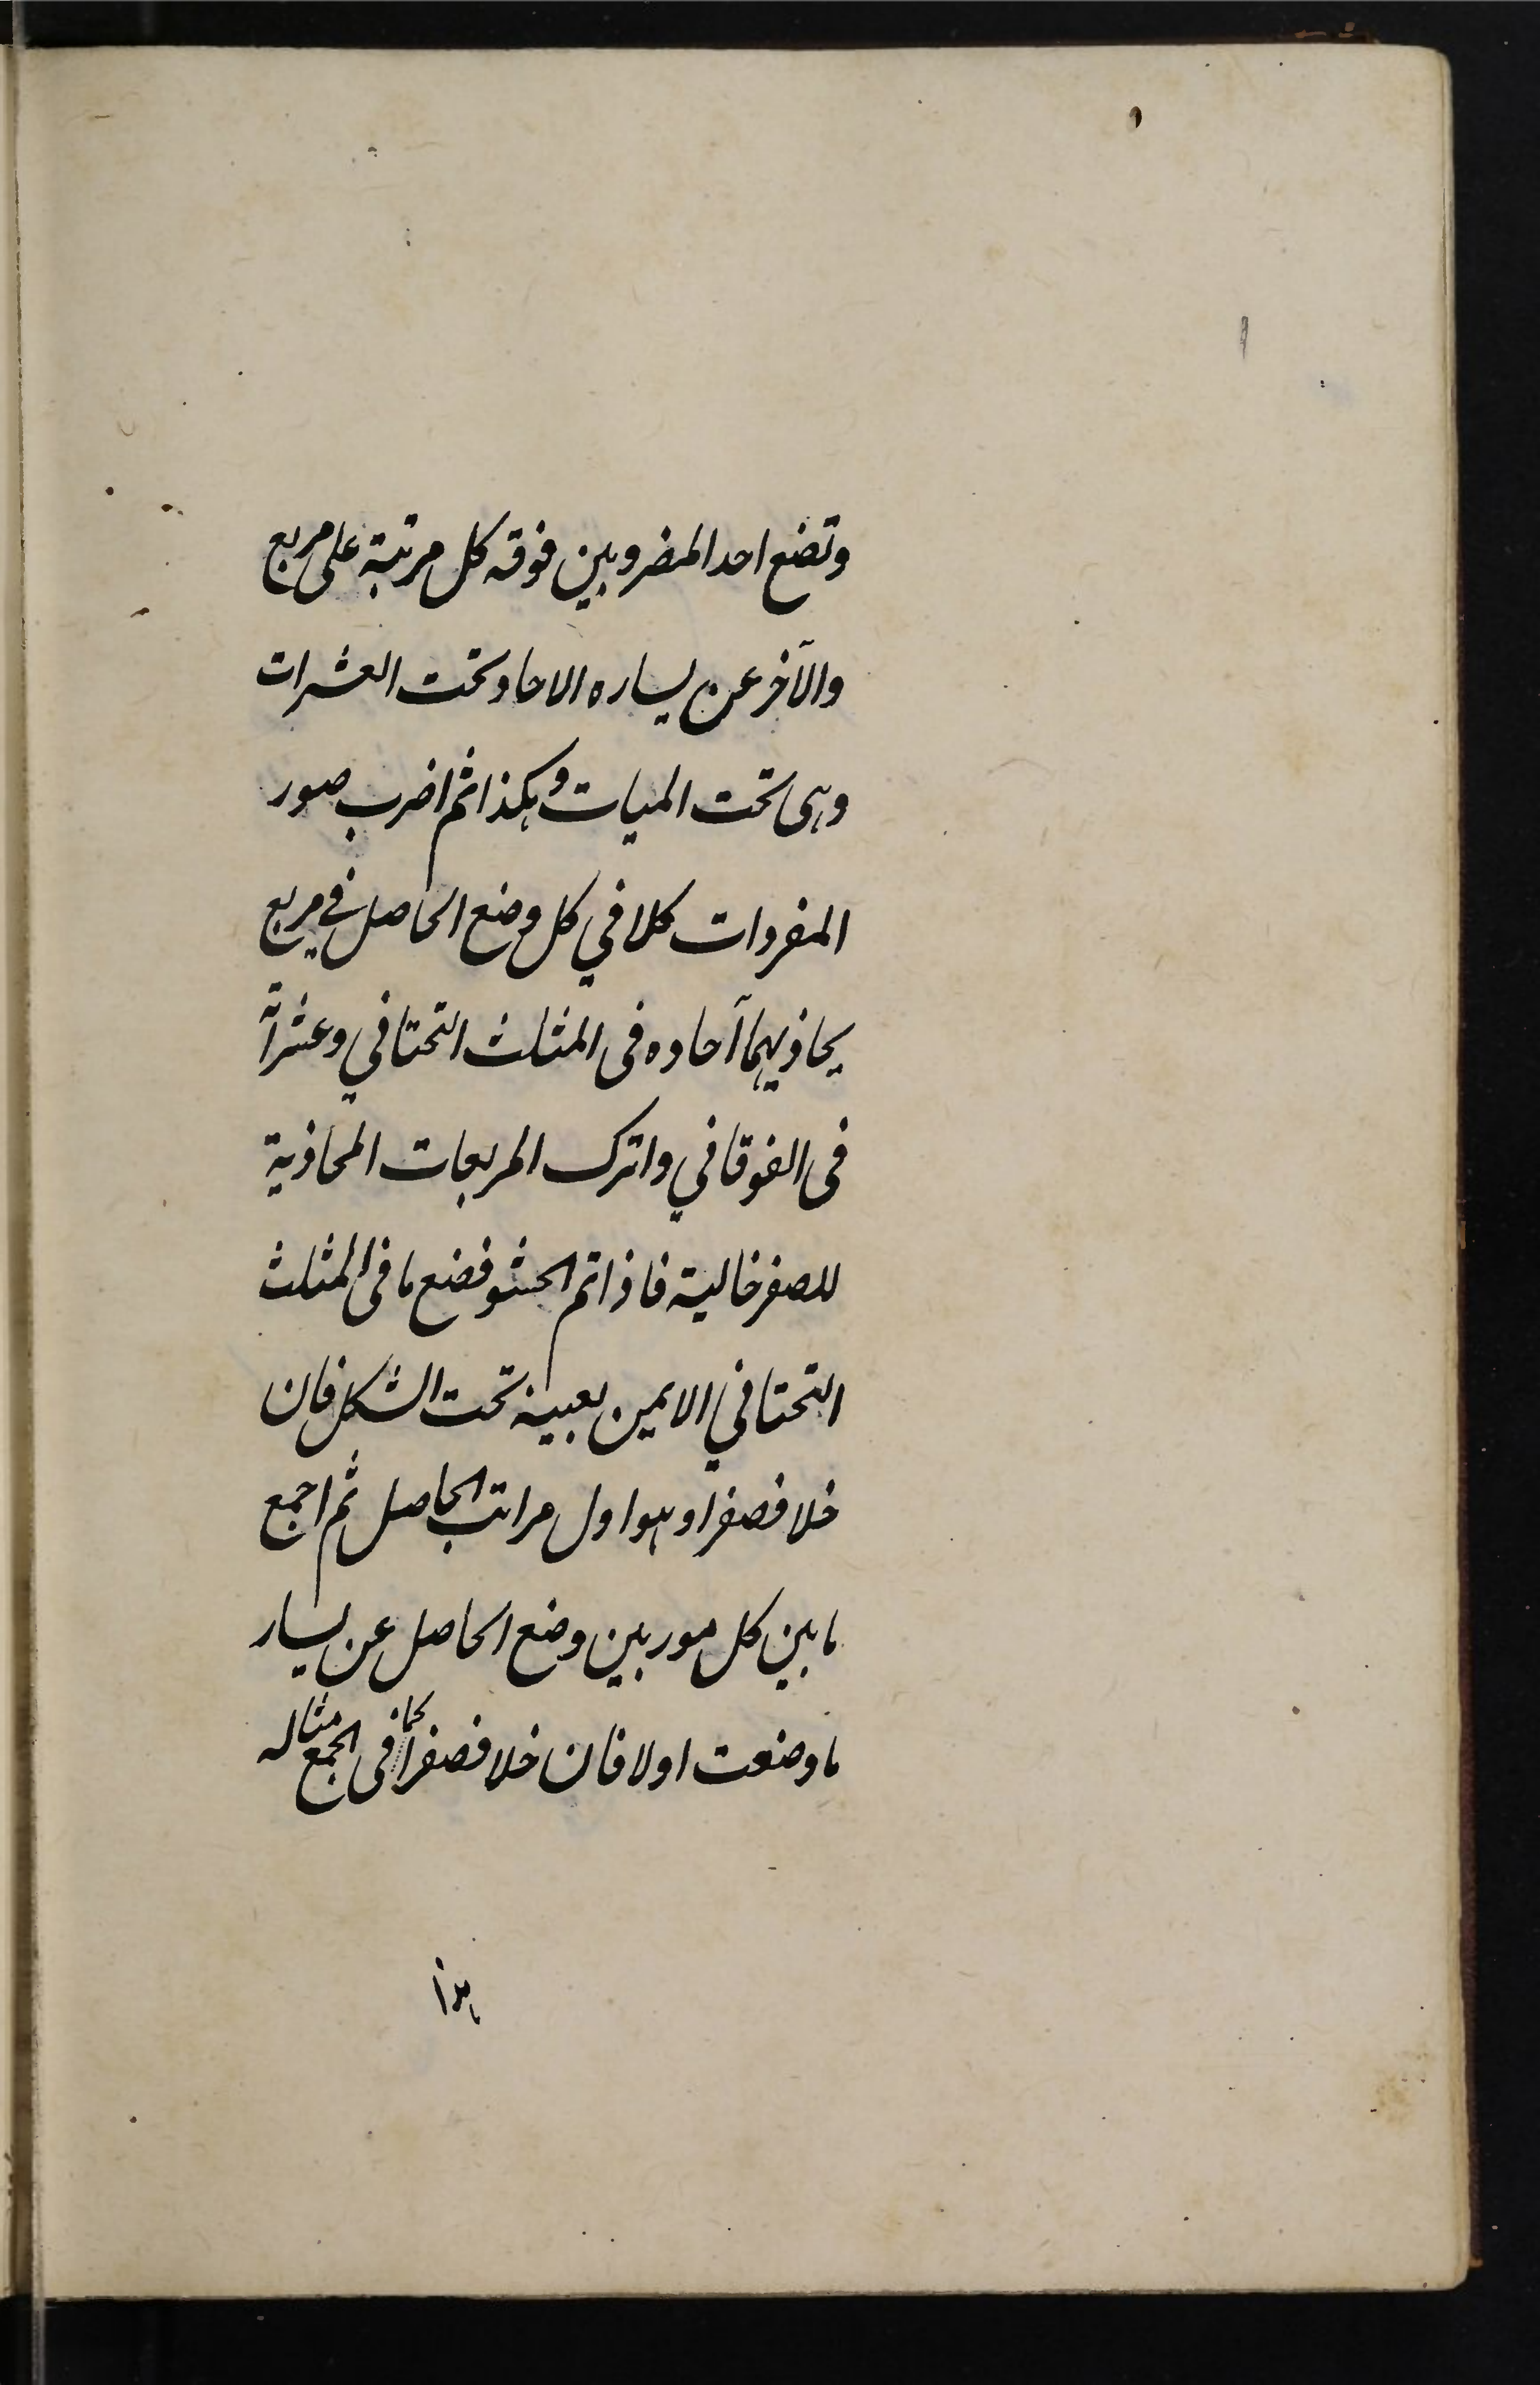 وتضع احد المضروبين فوقه كل مرتبة على مربع
والآخر عن يساره الاحاد تحت العشرات
وهى تحت الميات وهكذا ثم اضرب صور
المفردات كلا في كل وضع الحاصل في مربع
يحاذيهما آحاده فى المثلث التحتاني وعشراته
فى الفوقاني واترك المربعات المحاذية
للصفر خالية فاذا تم الحشو فضع ما فى المثلث
التحتاني الايمن بعينه تحت الشكل فان
خلا فصفرا وهو اول مراتب الحاصل ثم اجمع
ما بين كل موربين وضع الحاصل عن يسار
ما وضعت اولا فان خلا فصفرا كما فى الجمع مثاله
هذا